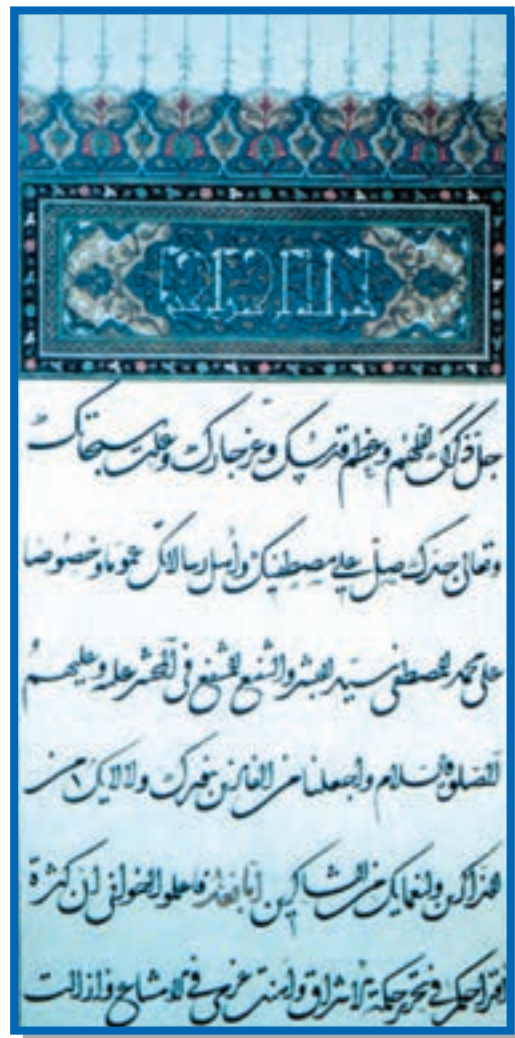 جل ذكرك اللهم وعظم قدسك وعز جارك وعلت سبحاتك
وتعالى جدك صل على مصطفيك وأهل رسالاتك عموما وخصوصا
على محمد المصطفى سيد البشر والشفيع المشفع في المحشر عليه وعليهم
الصلوة والسلام واجعلنا من الفائزين بنورك ولآلائك من
الذاكرين ولنعمائك من الشاكرين أما بعد فاعلموا اخواني ان كثرة
اقتراحكم في تحرير حكمة الاشراق وهنت عزمي في الامتناع وازالت